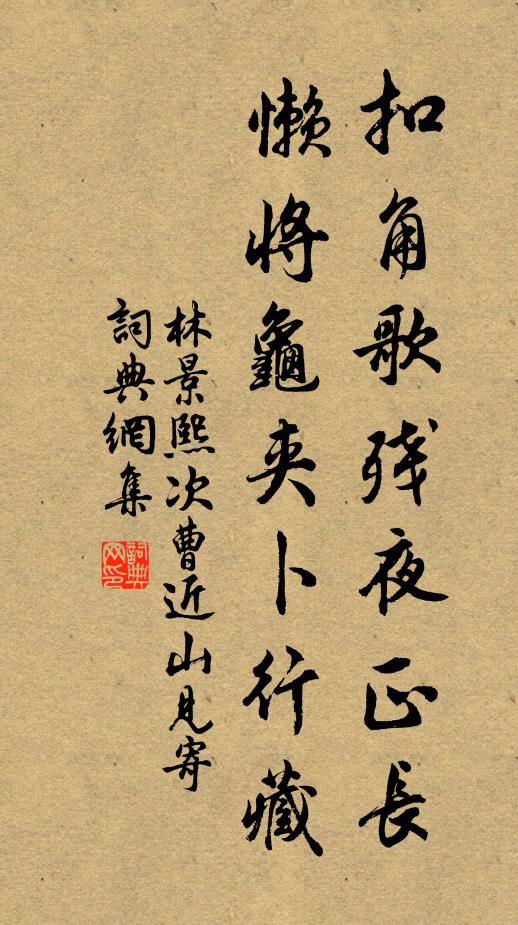 扣角歌残夜正長
懶將龜夾卜行藏
林景熙次曹近山見寄
詞典網集
詞典網印